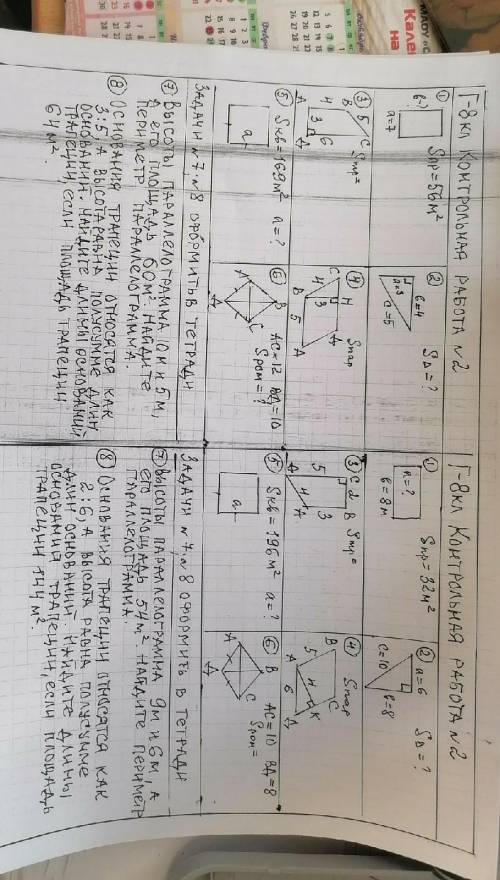 Г-8кл Контрольная работа №2
①
в-?
a=7
Sпр=56м²
②
a=3
в=4
c=5
S∆=?
③
B 5 C
4
3
6
A
Д
Sтр=
④
H
C
4
3
B
5
A
Д
Sпар
⑤
a
Sкв=169м²
a=?
⑥
A
B
C
Д
AC=12 ВД=10
Sром=?
Задачи №7,№8 оформить в тетради
⑦ Высоты параллелограмма 10 м и 5 м,
а его площадь 60 м². Найдите
периметр параллелограмма.
⑧ Основания трапеции относятся как
3:5, а высота равна полусумме длин
оснований. Найдите длины оснований
трапеции, если площадь трапеции
64 м².
Г-8кл Контрольная работа №2
①
a=?
в=8м
Sпр=32м²
②
a=6
c=10
в=8
S∆=?
③
C 2 B
5
4
3
A
Sтр=
④
B
C
5
4
K
A
6
Д
Sпар
⑤
a
Sкв=196м²
a=?
⑥
A
B
C
Д
AC=10 ВД=8
Sром=
Задачи №7,№8 оформить в тетради
⑦ Высоты параллелограмма 9м и 6м, а
его площадь 54 м². Найдите периметр
параллелограмма.
⑧ Основания трапеции относятся как
2:6, а высота равна полусумме
длин оснований. Найдите длины
основания трапеции, если площадь
трапеции 144 м².